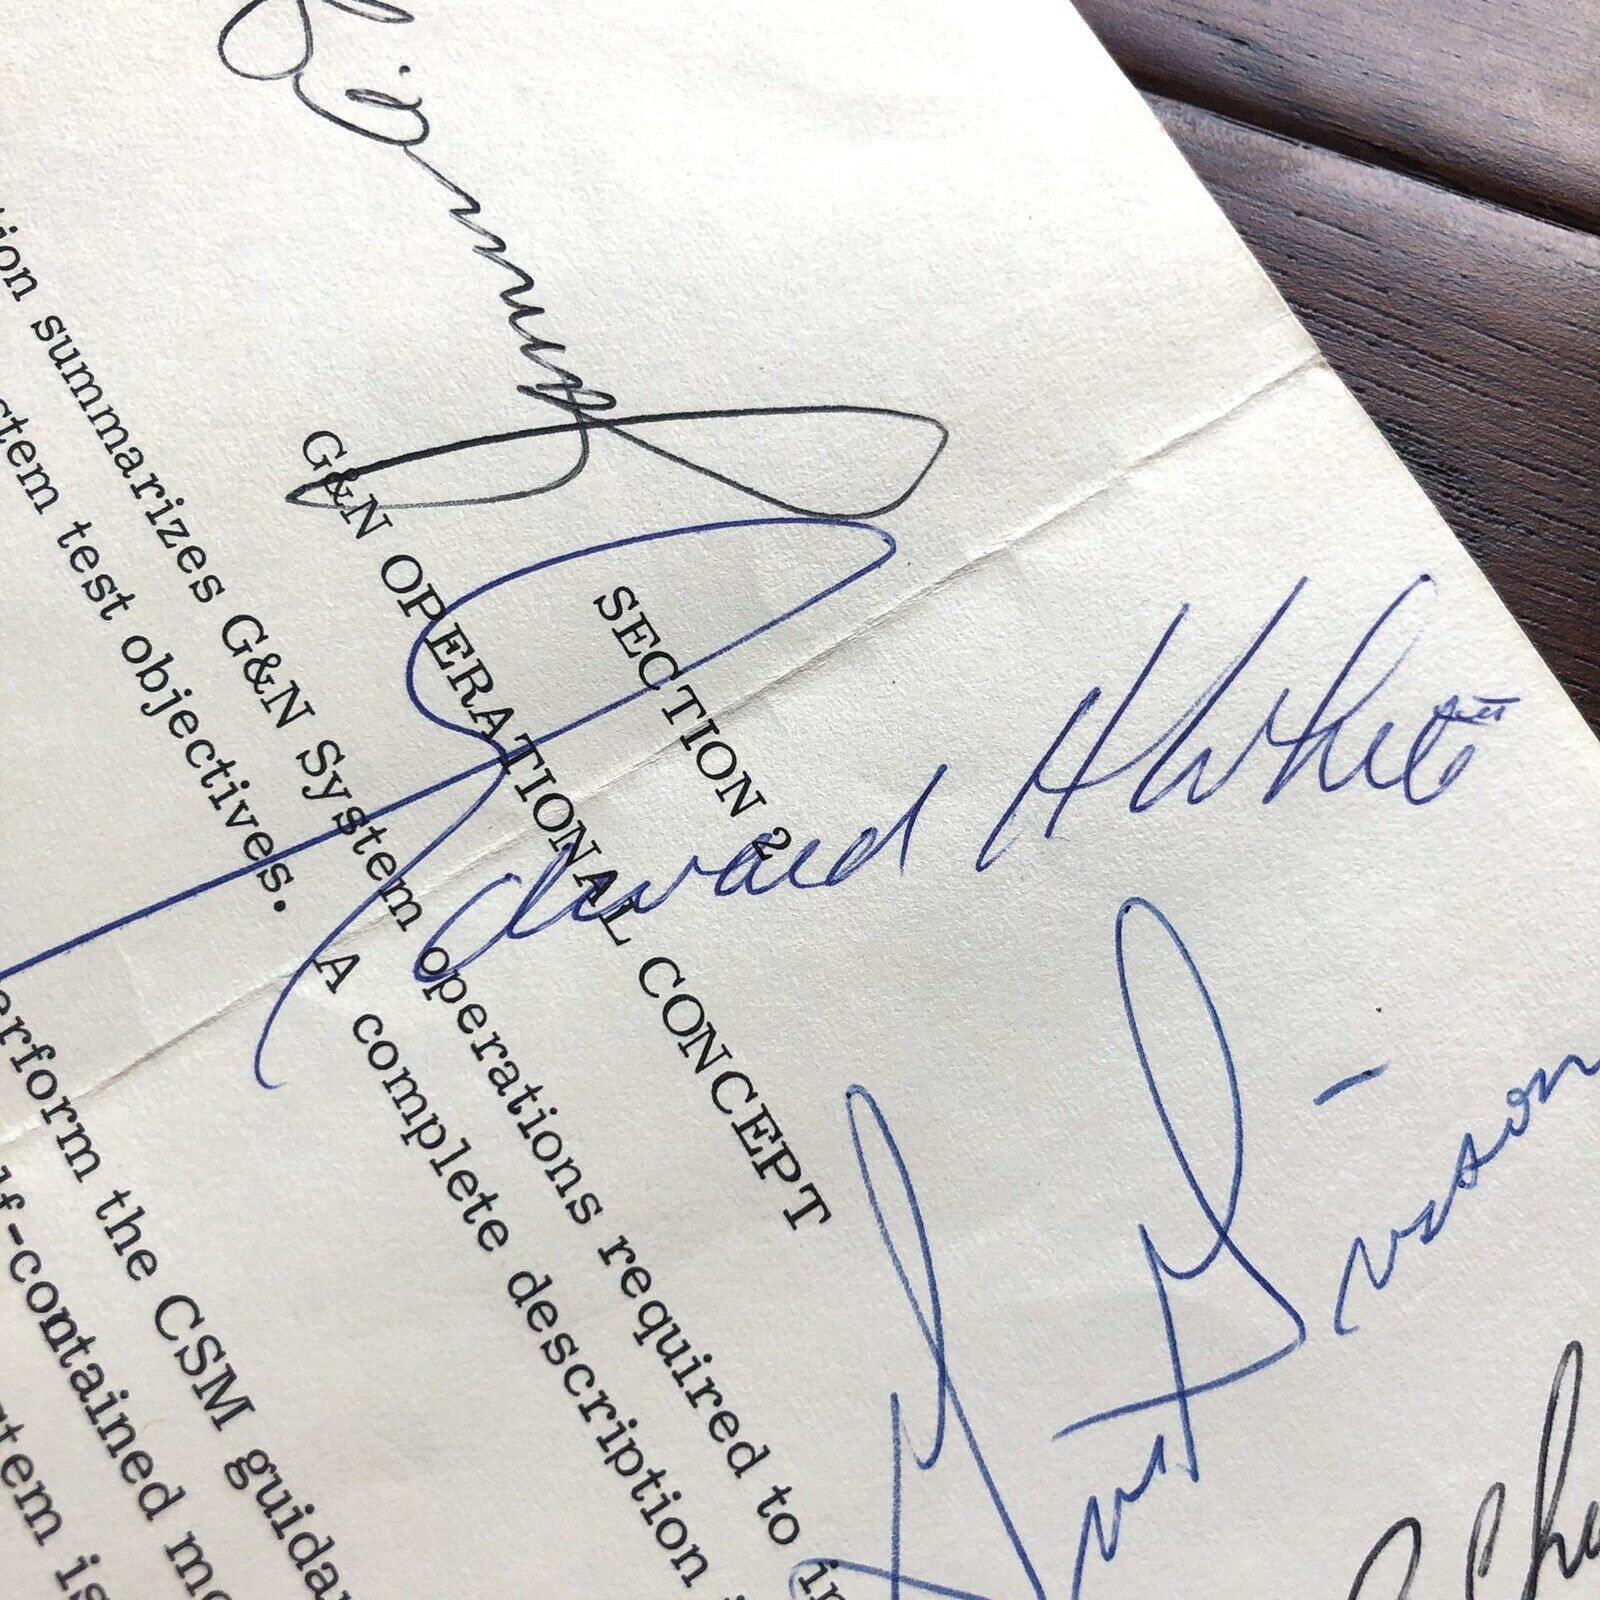 SECTION 2
G&N OPERATIONAL CONCEPT
ion summarizes G&N System operations required to in
stem test objectives. A complete description i
erform the CSM guidan
lf-contained mo
stem is
Edward H White II
Gus Grissom
Cha